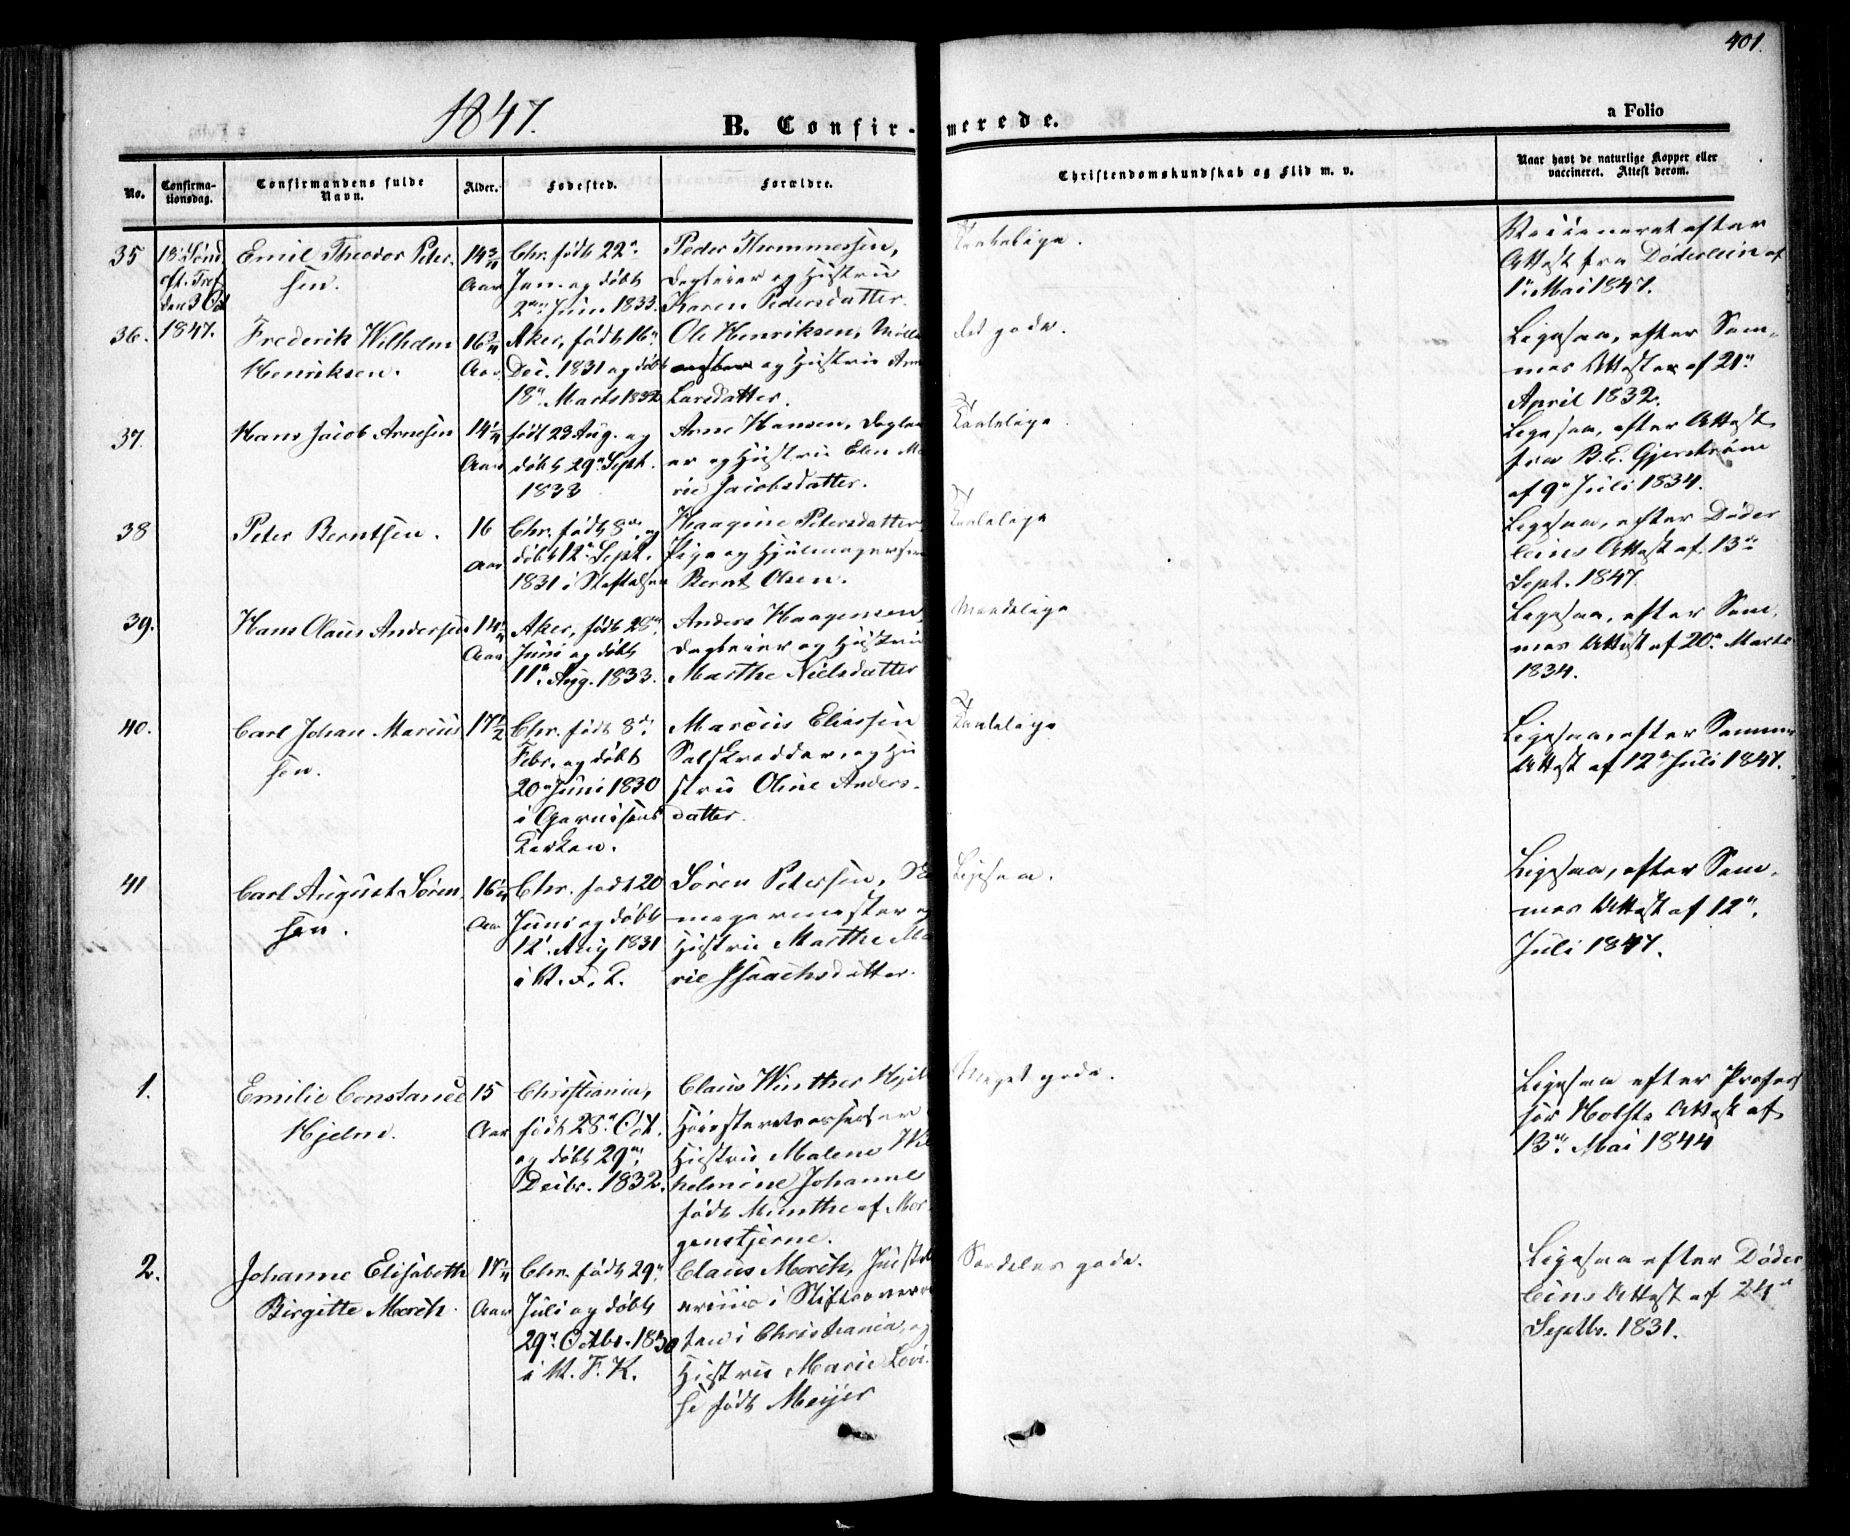 401.
1847.
B. Confirmerede.
a Folio
No.
Confirma-
tionsdag.
Confirmandens fulde
Navn.
Alder.
Fødested.
Forældre.
Christendomskundskab og Flid m. v.
Naar havt de naturlige Kopper eller
vaccineret. Attest derom.
35
18. Sönd
eft. Tref
den 3 Oct
1847.
Emil Theodor Peter-
sen.
14 3/4
Aar
Chr. født 22n
Jan. og døbt
2den Juni 1833.
Peder Thommessen,
Dagleier og Hustru
Karen Pedersdatter.
Taalelige.
Vaccineret efter
Attest fra Döderlein af
1n Mai 1847.
36.
Frederik Wilhelm
Henriksen.
16 3/4
Aar
Aker, født 16n
Dec. 1831 og døbt
18n Marts 1832
Ole Henriksen, Mölle
og Hustru Anne
Larsdatter.
det gode.
Ligesaa, efter Sam-
mes Attest af 21n
April 1832.
37.
Hans Jacob Arnesen
14 1/4
Aar
født 23 Aug. og
døbt 29n Sept.
1833
Arne Hansen, Daglei
er og Hustru Elen Ma
rie Jacobsdatter.
Taalelige
Ligesaa, efter Attest
fra B. E. Gjerström
af 9n Juli 1834.
38
Peter Berntsen.
16
Aar
Chr. født 8de og
døbt 12n Sept.
1831 i
Haagine Petersdatter
Pige og Hjulmagersvend
Bernt Olsen.
Taalelige
Ligesaa, efter Döder
leins Attest af 13de
Sept. 1847.
39.
Hans Olaus Andersen
14 1/4
Aar
Aker, født 28de
Juni og døbt
11n Aug. 1833.
Anders Haagensen,
Dagleier og Hustru
Marthe Nielsdatter
Maadelige
Ligesaa, efter Sam-
mes Attest af 20n Marts
1834.
40.
Carl Johan Marius
sen.
17 1/2
Chr. født 8de
Febr. og døbt
20n Juni 1830
i Garnisons
Kirken.
Marcus Eliassen
Salskrædder, og Hu
stru Oline Anders-
datter.
Taalelige
Ligesaa, efter Sammes
Attest af 12n Juli 1847.
41
Carl August Sören
sen.
16 1/4
Aar
Chr. født 20
Juni og døbt
12. Aug 1831
i V. F. K.
Sören Petersen,
magermester og
Hustru Marthe Ma
rie Isaachsdatter.
Ligesaa.
Ligesaa, efter Sam-
mes Attest af 12n
Juli 1847.
1.
Emilie Constance
Hjelm.
15
Aar
Christiania,
født 28n Oct.
og døbt 29de
Decbr. 1832.
Claus Winther Hjelm
Höiesteretsassessor
Hustru Malene Wil
helmine Johanne
født Munthe af Mor-
genstjerne.
Meget gode.
Ligesaa efter Profes
sor Holsts Attest af
13de Mai 1844
2.
Johanne Elisabeth
Birgitte Morch.
17 1/4
Aar
Chr. født 29n
Juli og døbt
29n Octbr. 1830
i V. F. K.
Claus Morch,
i Stiftsoverret
ten i Christiania, og
Hustru Marie Lovi-
se født Meijer
Særdeles gode.
Ligesaa efter Döder
leins Attest af 24n
Septbr. 1831.